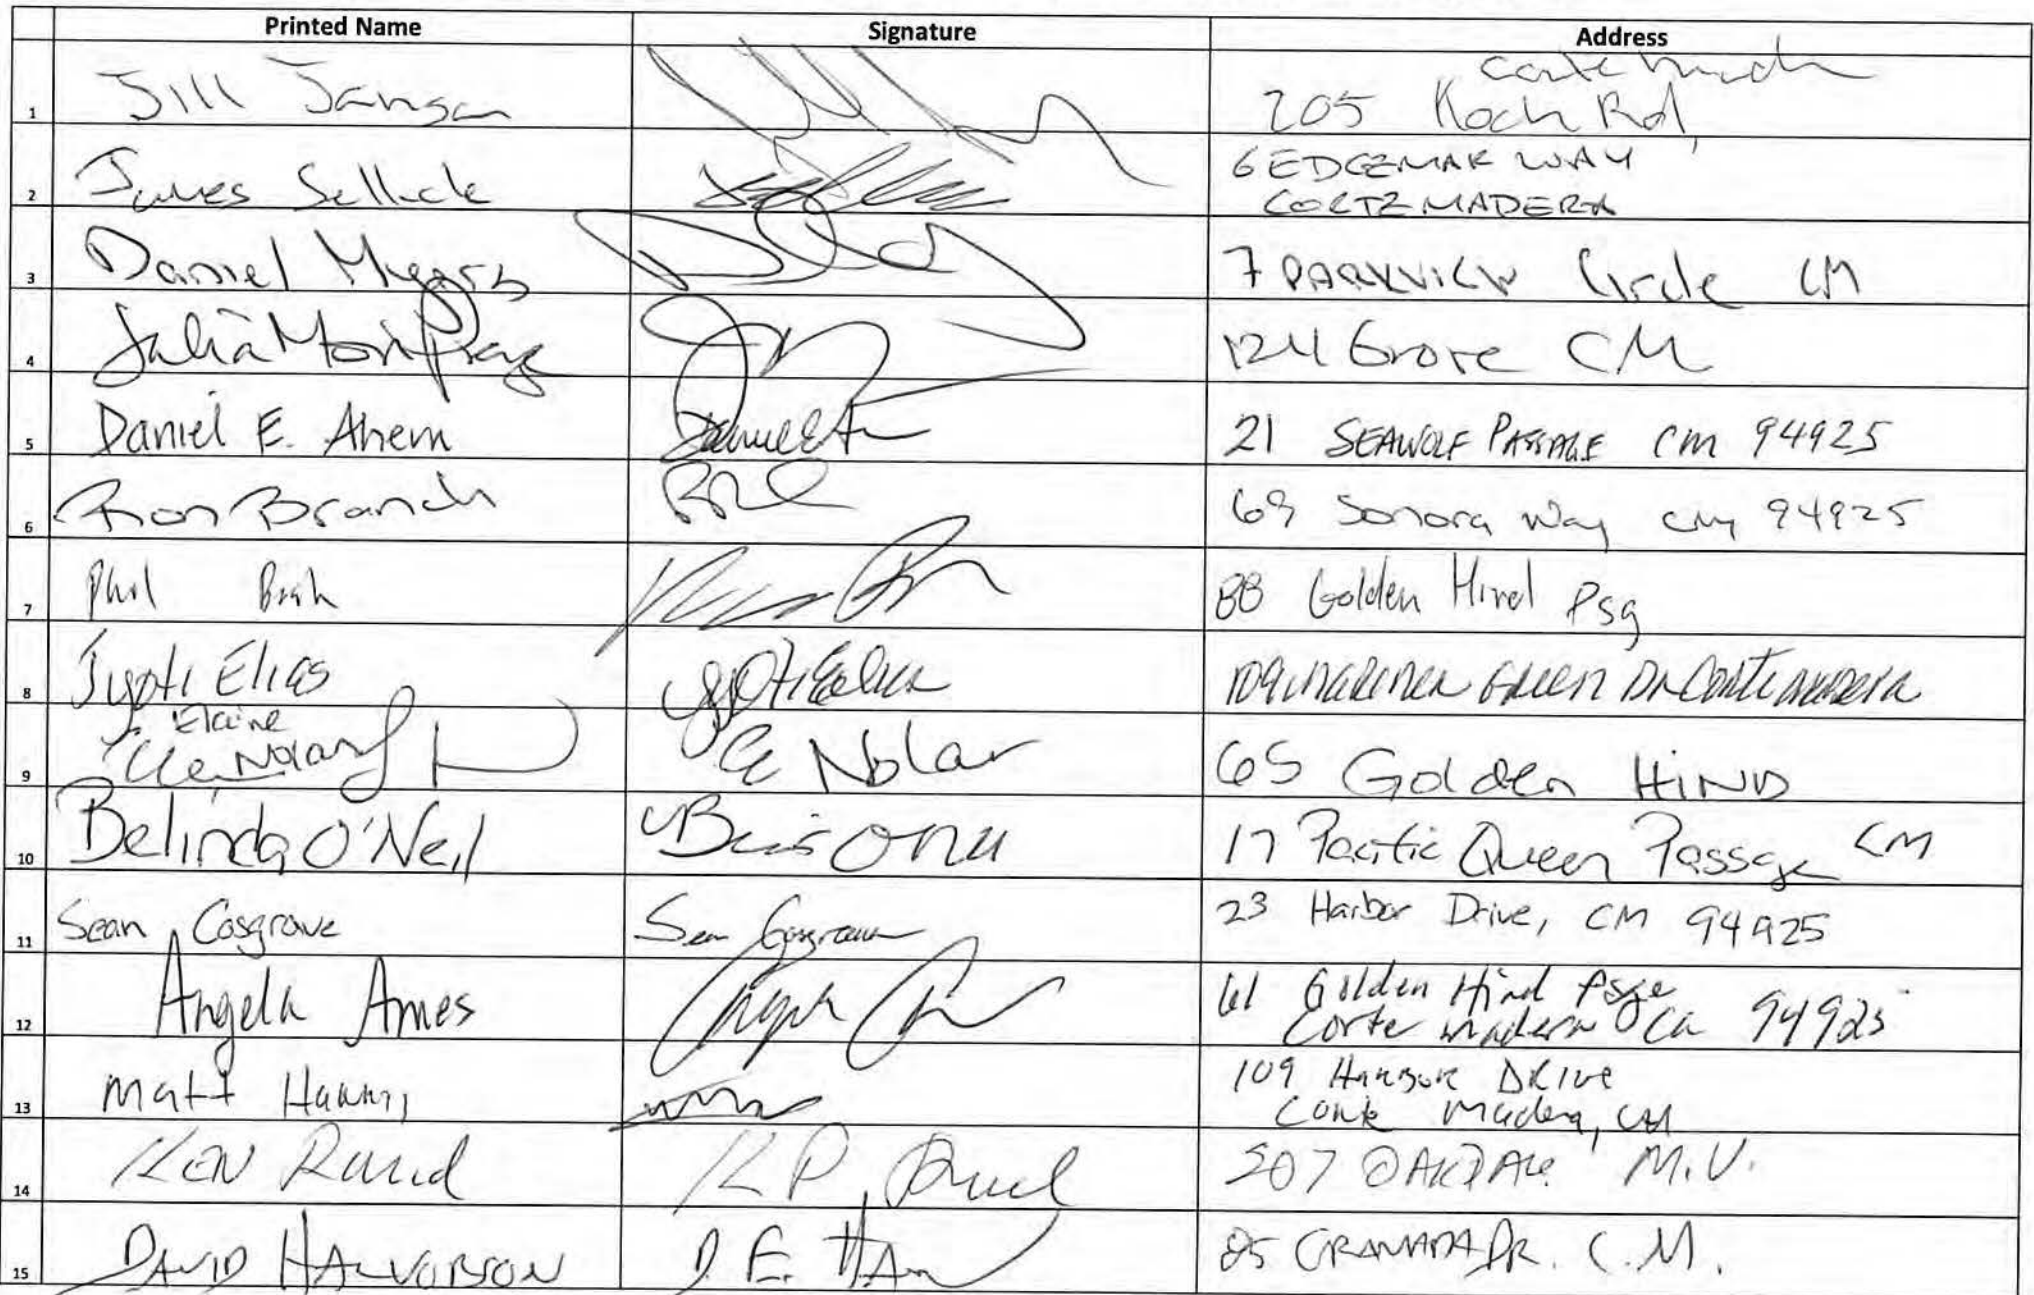 Printed Name Signature Address
1 Jill Jansen 205 Koch Rd,
Corte Madera
2 James Sellick 6 EDGEMAR WAY
CORTE MADERA
3 Daniel Myers 7 PARKVIEW Circle CM
4 Julia 124 Grove CM
5 Daniel E. Ahern 21 SEAWOLF PASSAGE CM 94925
6 Ron Branch 69 Sonora Way CM 94925
7 Phil 88 Golden Hind Psg
8 Jyoti Elias Jyoti Elias 109 MARINER GREEN DR CORTE MADERA
9 Elaine
Nolan E Nolan 65 Golden HIND
10 Belinda O'Neil 17 Pacific Queen Passage CM
11 Sean Cosgrove Sean Cosgrove 23 Harbor Drive, CM 94925
12 Angela Ames 61 Golden Hind Psge
Corte Madera Ca 94925
13 Matt 109 HARBOR DRIVE
Corte Madera, CA
14 KEN 507 OAKDALE M.V.
15 DAVID HALVORSON D. E. 85 GRANADA DR. C.M.